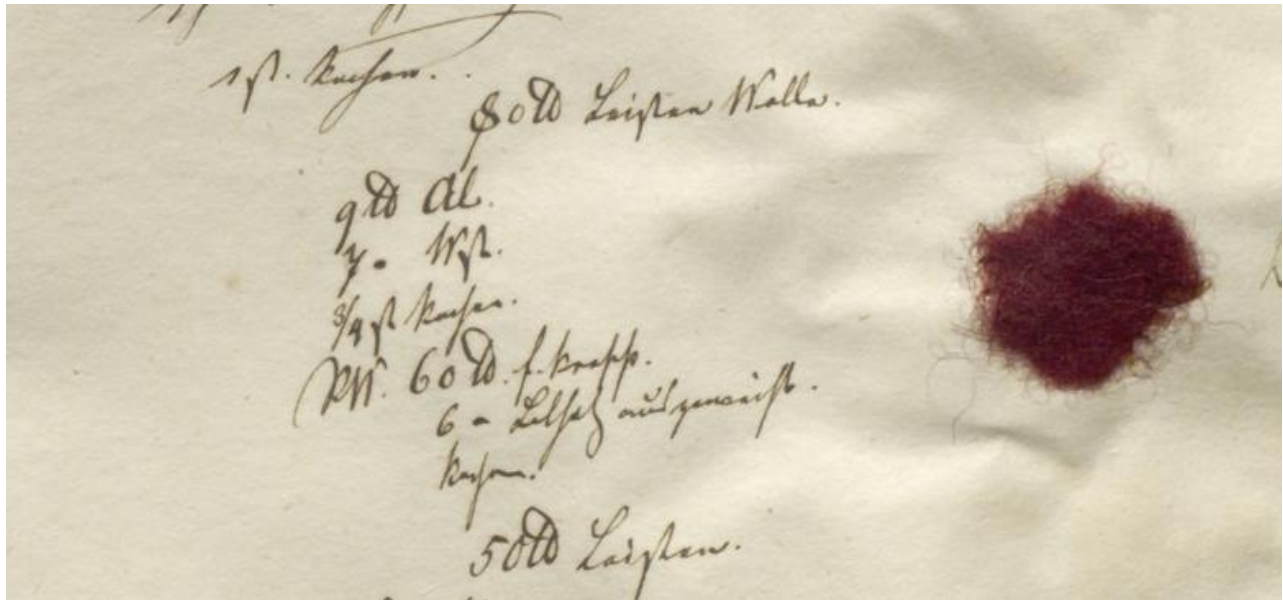 1 st. kochen.
80 ℔ Leisten Wolle.
9 ℔ Al.
7 - Wst.
3/4 st kochen.
60 ℔. f. Krapp.
6 - ausgeweicht.
kochen.
50 ℔ Leisten.